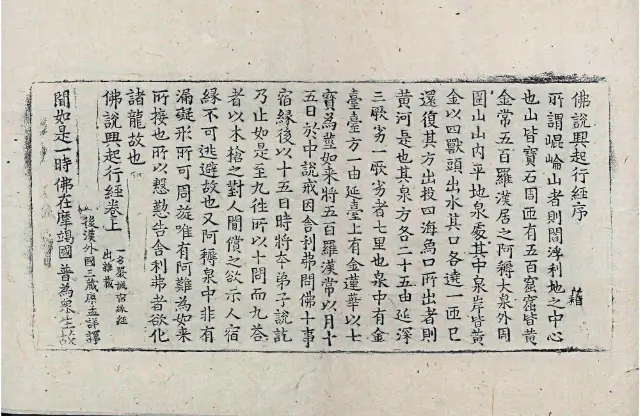 佛說興起行經序
藉
所謂崐崘山者則閻浮利地之中心
也山皆寶石周匝有五百窟窟皆黃
金常五百羅漢居之阿耨大泉外周
圍山山內平地泉處其中泉岸皆黃
金以四獸頭出水其口各遶一匝已
還復其方出投四海象口所出者則
黃河是也其泉方各二十五由延深
三厥劣一厥劣者七里也泉中有金
臺臺方一由延臺上有金蓮華以七
寶為莖如來將五百羅漢常以月十
五日於中說戒因舍利弗問佛十事
宿緣後以十五日時將本弟子說訖
乃止如是至九往所以十問而九荅
者以木槍之對人間償之欲示人宿
緣不可逃避故也又阿耨泉中非有
漏礙形所可周旋唯有阿難為如來
所接也所以慇懃告舍利弗者欲化
諸龍故也
佛說興起行經卷上
一名嚴誡宿緣經
出雜藏
後漢外國三藏康孟詳譯
聞如是一時佛在摩竭國普為眾生故